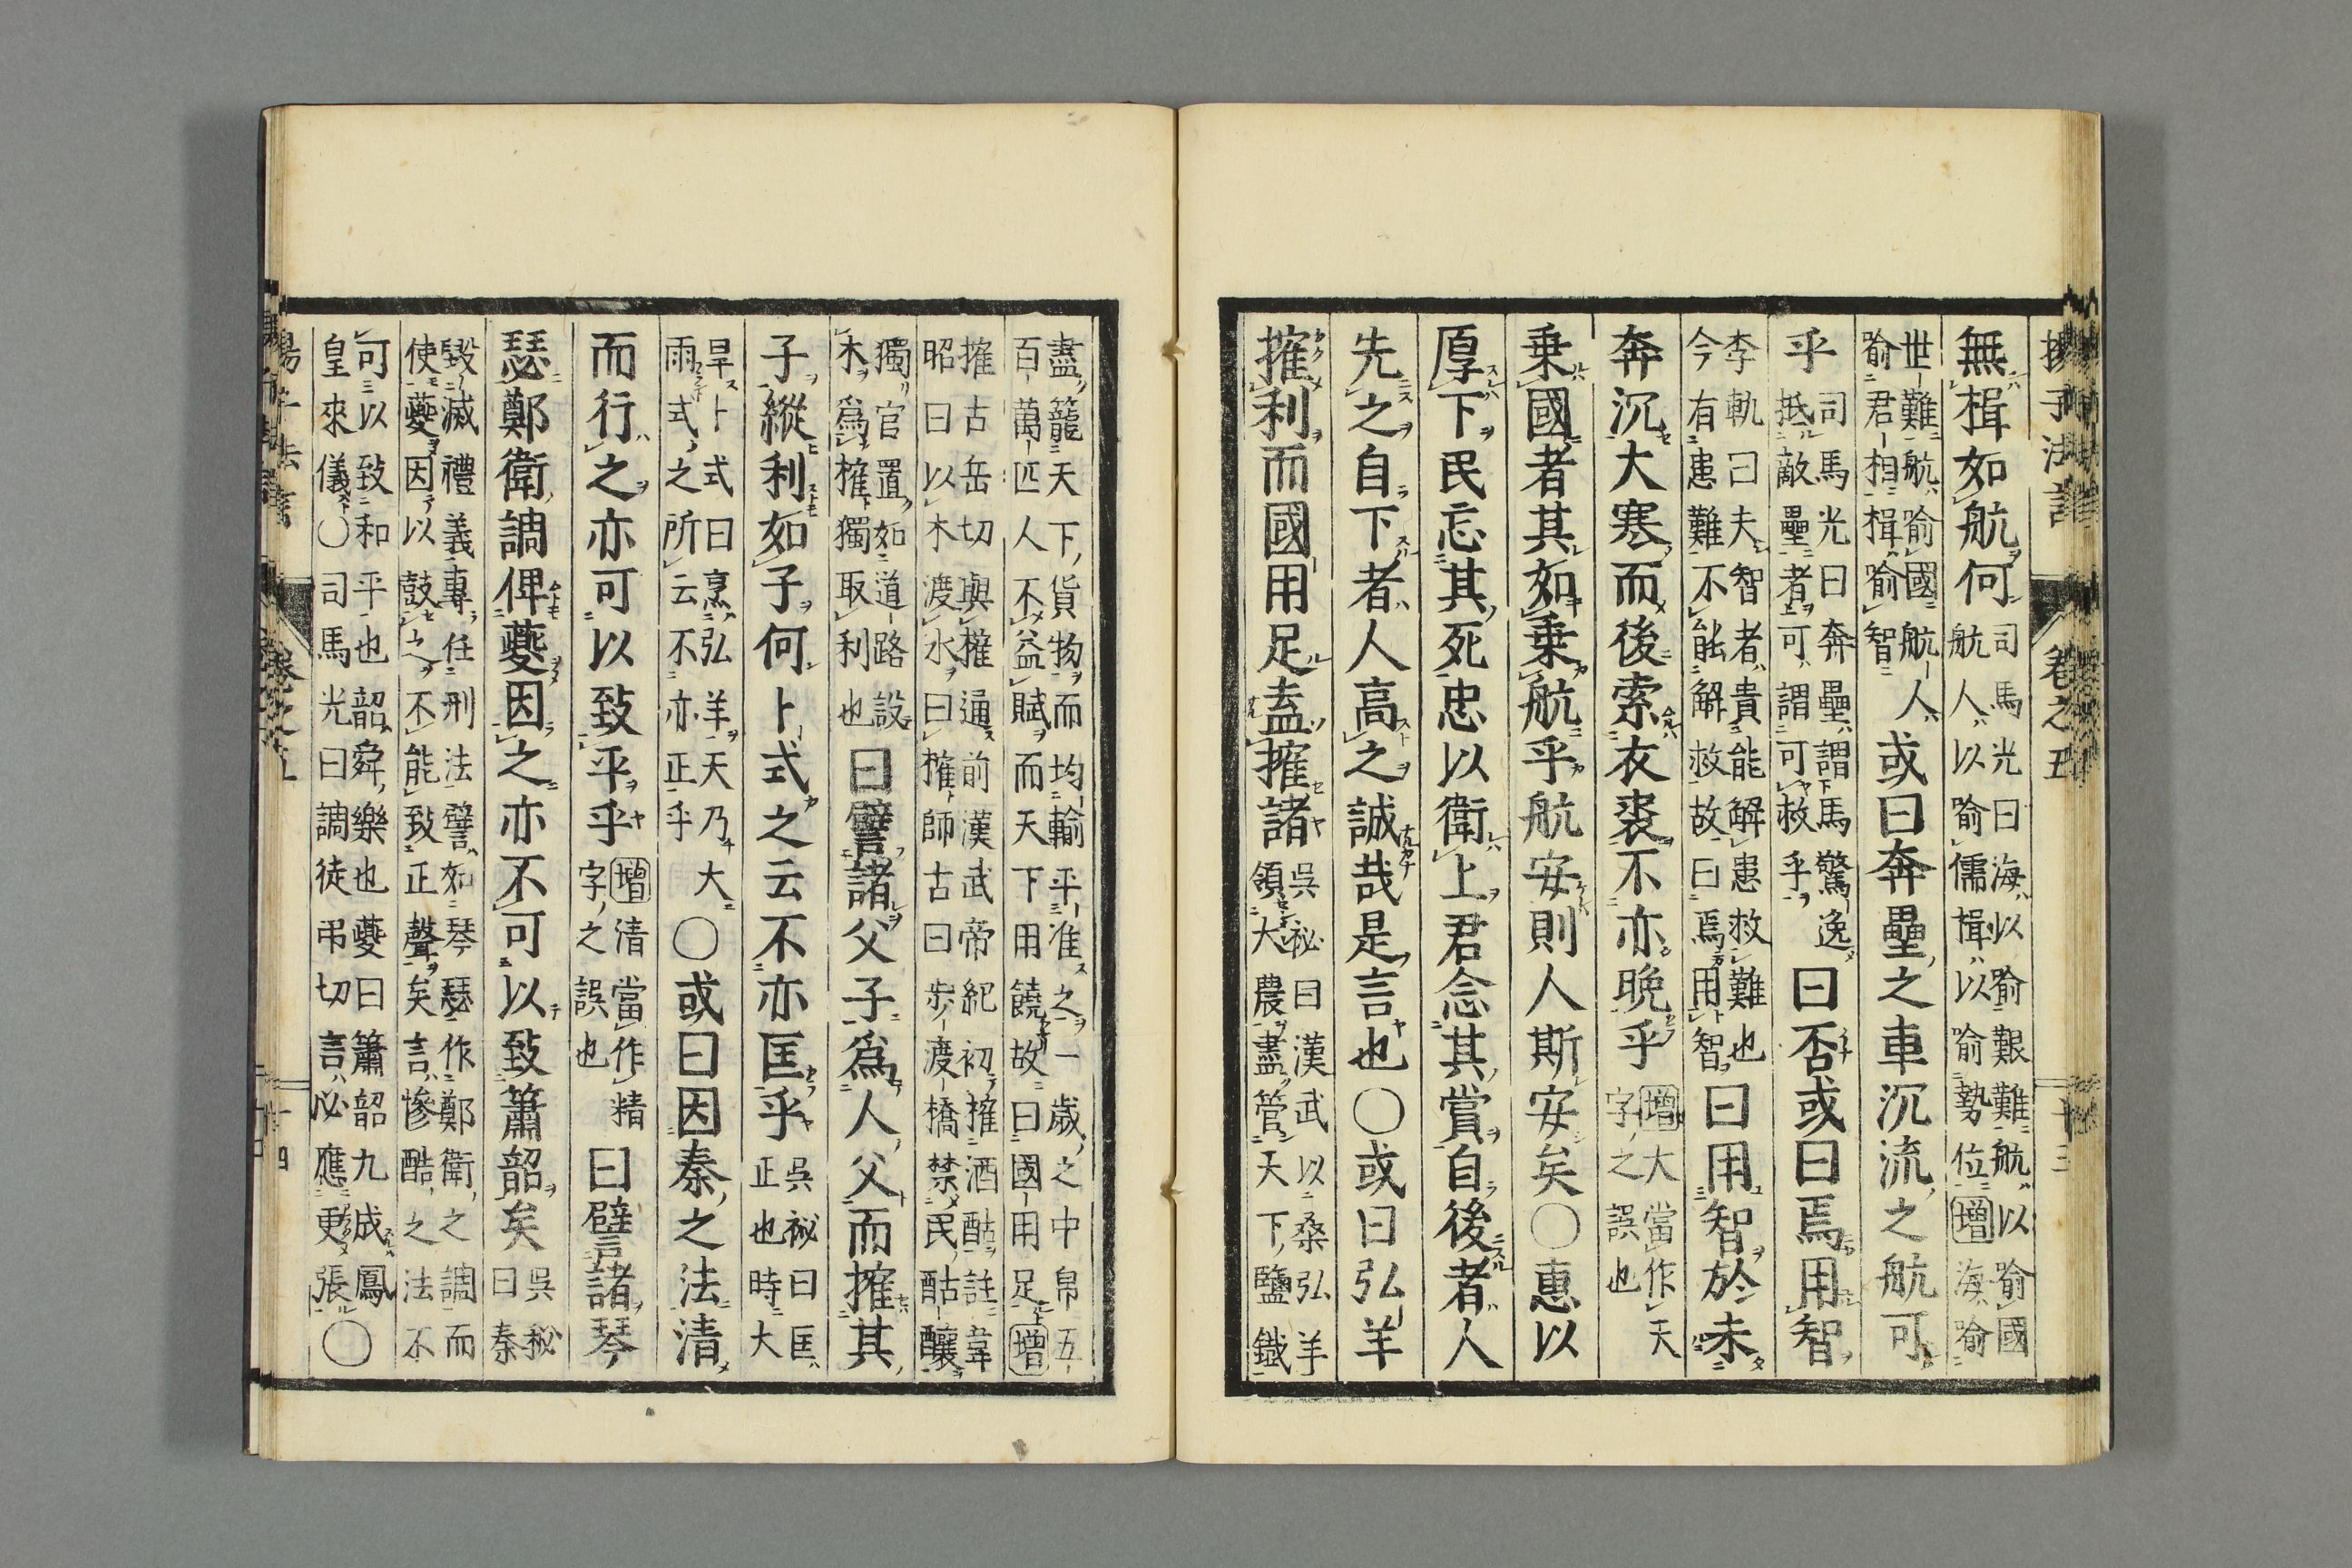 揚子法言　卷之五　十三
無楫如航何司馬光曰海以喻艱難航以喻國
航人以喻儒楫以喻勢位增海喻
世難航喻國航人
喻君相楫喻智
或曰奔壘之車沉流之航可
乎司馬光曰奔壘謂馬驚逸
抵敵壘者可謂可救乎
曰否或曰焉用智
李軌曰夫智者貴能解患救難也
今有患難不能解救故曰焉用智
曰用智於未
奔沉大寒而後索衣裘不亦晚乎增大當作天
字之誤也
乗國者其如乗航乎航安則人斯安矣○惠以
厚下民忘其死忠以衛上君念其賞自後者人
先之自下者人高之誠哉是言也○或曰弘羊
搉利而國用足盍搉諸吳祕曰漢武以桑弘羊
領大農盡管天下鹽鐵
盡籠天下貨物而均輸平准之一歲之中帛五
百萬匹人不益賦而天下用饒故曰國用足增
搉古岳切與榷通前漢武帝紀初搉酒酤註韋
昭曰以木渡水曰搉師古曰步渡橋禁民酤釀
獨官置如道路設
木爲搉獨取利也
曰譬諸父子爲人父而搉其
子縱利如子何卜式之云不亦匡乎吳祕曰匡
正也時大
旱卜式曰烹弘羊天乃大
雨式之所云不亦正乎
○或曰因秦之法清
而行之亦可以致平乎增清當作精
字之誤也
曰譬諸琴
瑟鄭衛調俾夔因之亦不可以致簫韶矣吳祕
曰秦
毀滅禮義專任刑法譬如琴瑟作鄭衛之調而
使夔因以鼓之不能致正聲矣言慘酷之法不
可以致和平也韶舜樂也夔曰簫韶九成鳳
皇來儀○司馬光曰調徒弔切言必應更張○
揚子法言　卷之五　十四